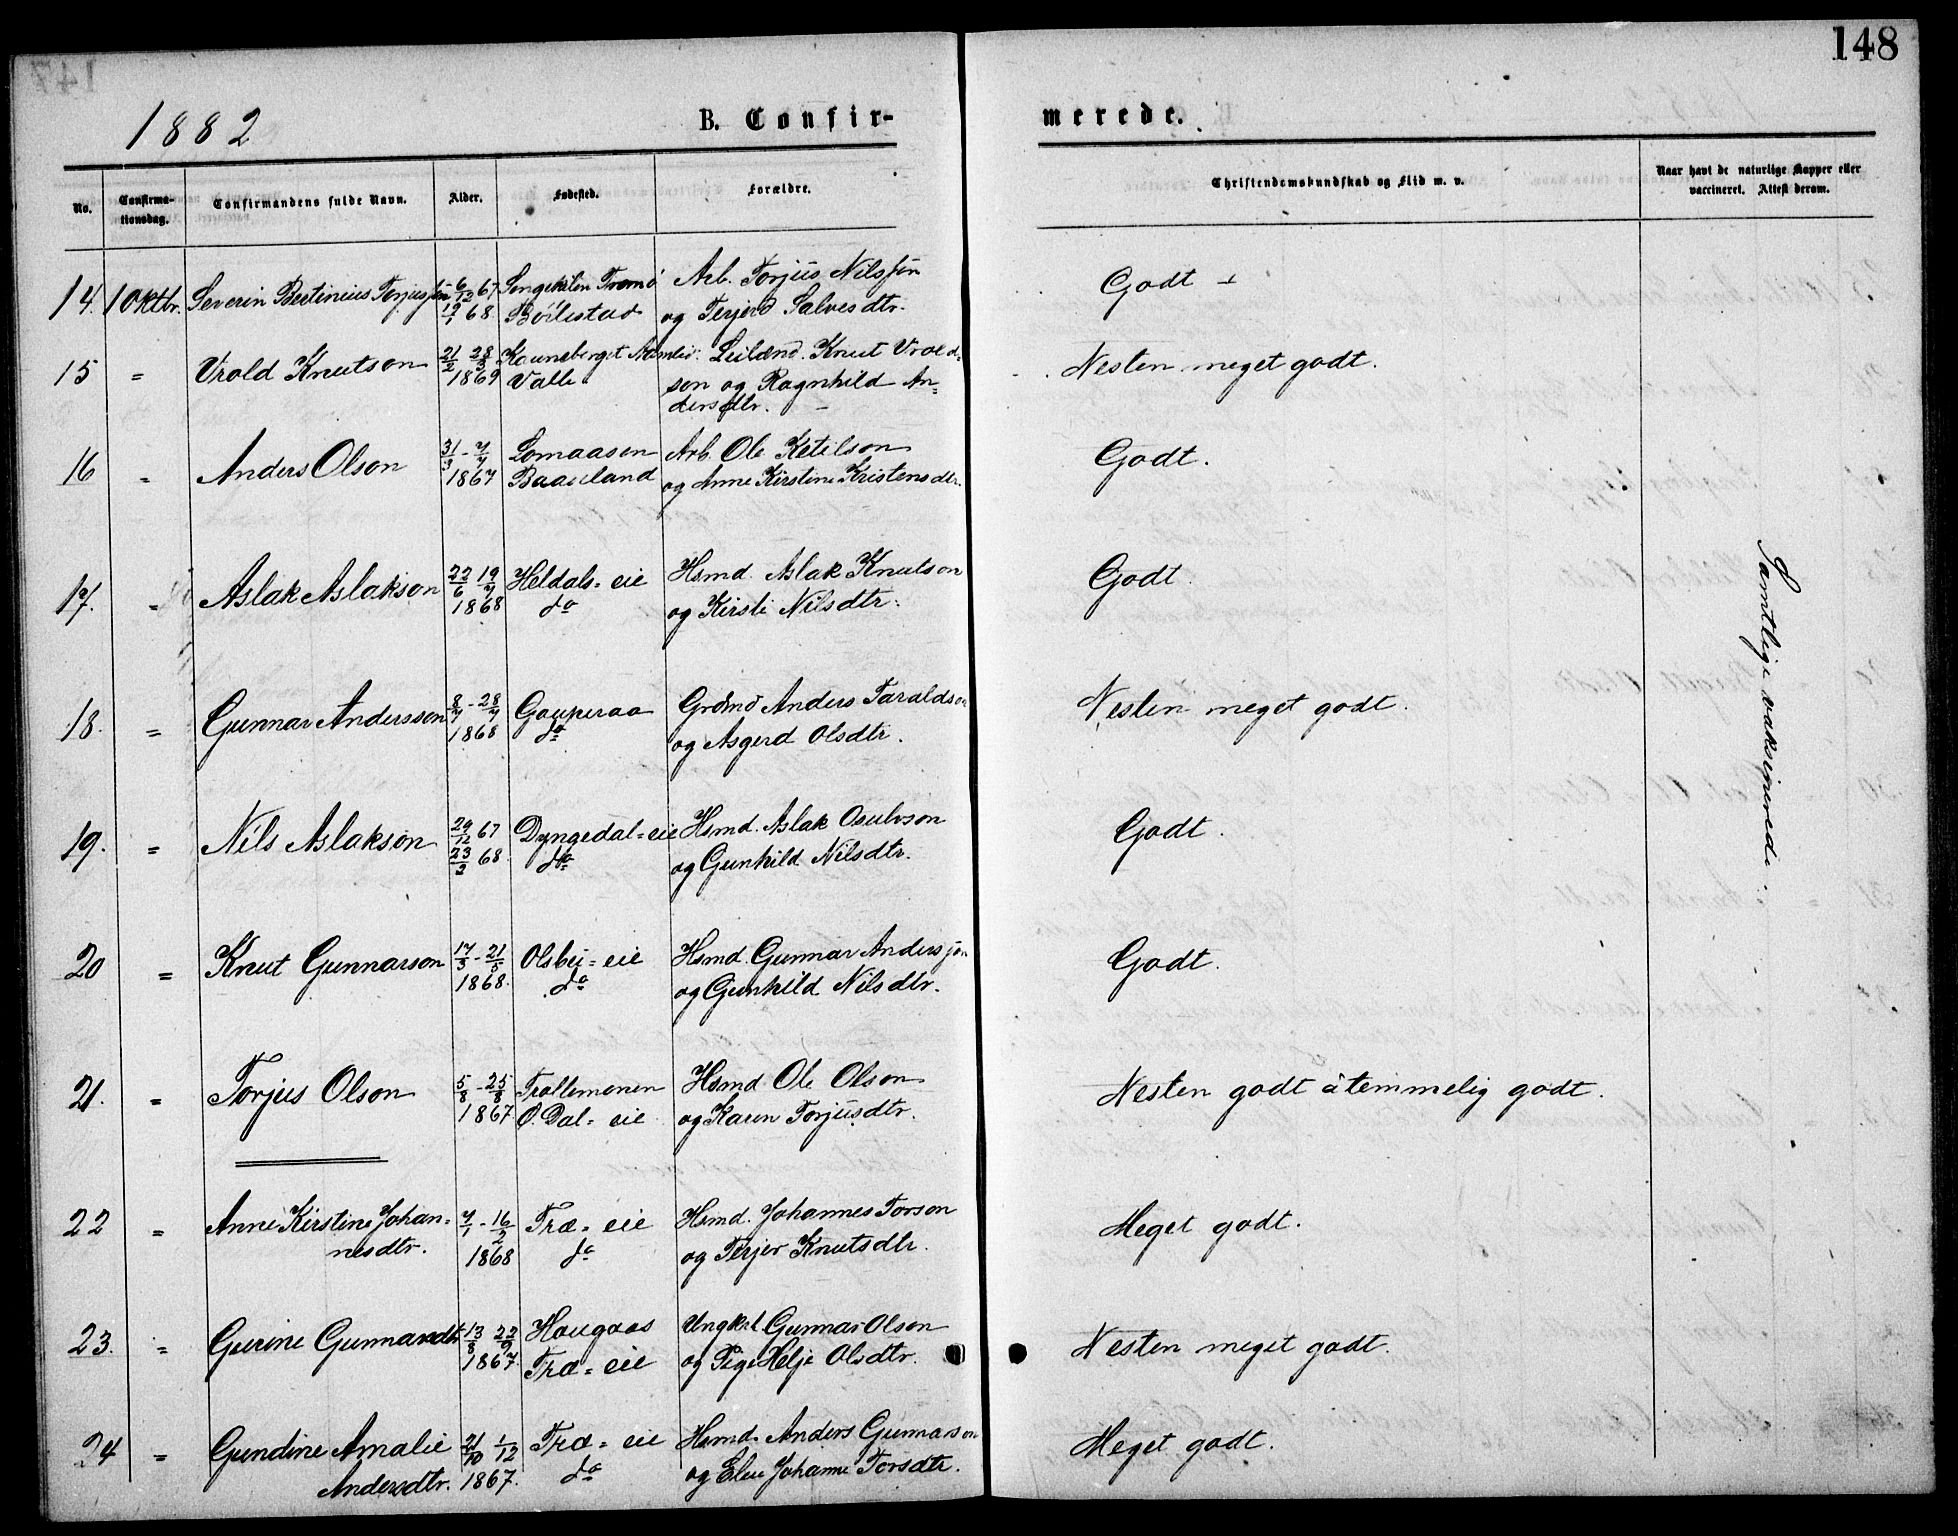 148
1882 B. Confirmerede.
No. Confirmationsdag. Confirmandens fulde Navn. Alder. Fødested. Forældre. Christendomskundskab og Flid m. v. Naar havt de naturlige Kopper eller vaccineret. Attest derom.
14. 1 Oktbr. Severin Bertinius Torjusson 6/12 67 Songekilen Tromø Arb. Torjus Nilsson Godt
12/1 68 Bøilestad og Terjerd Salvesdtr.
15 = Vrold Knutson 21/2 28/3 Aamlid: Leilænd. Knut Vrold= Nesten meget godt.
1869 Valle son og Ragnhild An=
dersdtr. –
16 = Anders Olson 31/3 - 7/7 Lomaasen Arb. Ole Ketilson Godt.
1867 Baaseland og Anne Kirstine Kristensdtr.
17. = Aslak Aslakson 22/6 19/7 Heldals = eie Hsmd. Aslak Knutson Godt.
1868 do og Kirsti Nilsdtr.
18. = Gunnar Andersson 8/7 - 28/7 Gauperaa Grdmd Anders Taraldson Nesten meget godt.
1868 do og Asgerd Olsdtr.
19. = Nils Aslakson 29/12 67 Dyngedal = eie Hsmd. Aslak Osulvson Godt.
23/2 68 do og Gunhild Nilsdtr.
20 = Knut Gunnarson 17/3 - 21/5 Olsbu = eie Hsmd. Gunnar Andersson Godt.
1868. do og Gunhild Nilsdtr.
21. = Torjus Olson 5/8 - 25/8 Trollemonen Hsmd Ole Olson Nesten godt à temmelig godt.
1867 Ø. Dal = eie og Karen Torjusdtr.
22 = Anne Kirstine Johan= 7/1 - 16/2 Træ = eie Hsmd. Johannes Torson Meget godt.
nesdtr. 1868 do og Terjer Knutsdtr.
23. = Gurine Gunnarsdtr 13/8 22/9 Haugaas Ungkrl. Gunnar Olson Nesten meget godt.
1867. Træ = eie og Pige Helje Olsdtr.
24 = Gundine Amalie 21/10 1/12 Træ = eie Hsmd. Anders Gunnarson Meget godt.
Andersdtr. 1867. do og Elen Johanne Torsdtr.
Samtlige vaksinerede.